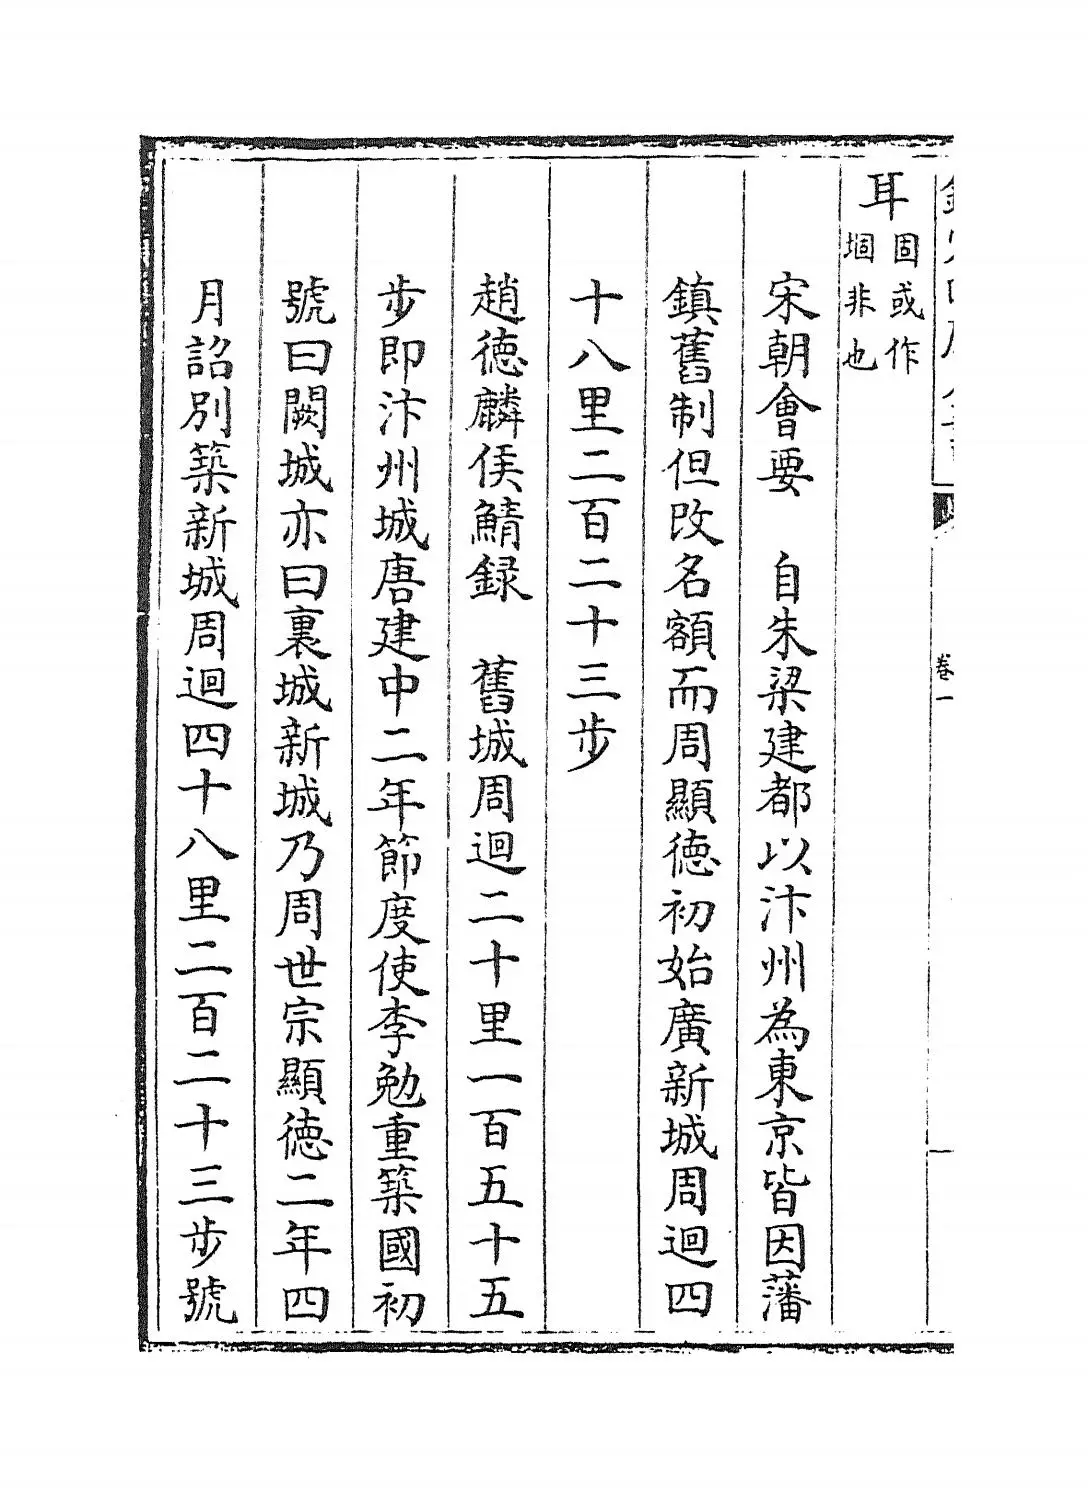 耳固或作堌非也
宋朝會要　自朱梁建都以汴州為東京皆因藩
鎮舊制但改名額而周顯徳初始廣新城周迴四
十八里二百二十三步
趙徳麟侯鯖録　舊城周迴二十里一百五十五
步即汴州城唐建中二年節度使李勉重築國初
號曰闕城亦曰裏城新城乃周世宗顯徳二年四
月詔別築新城周迴四十八里二百二十三步號
卷一